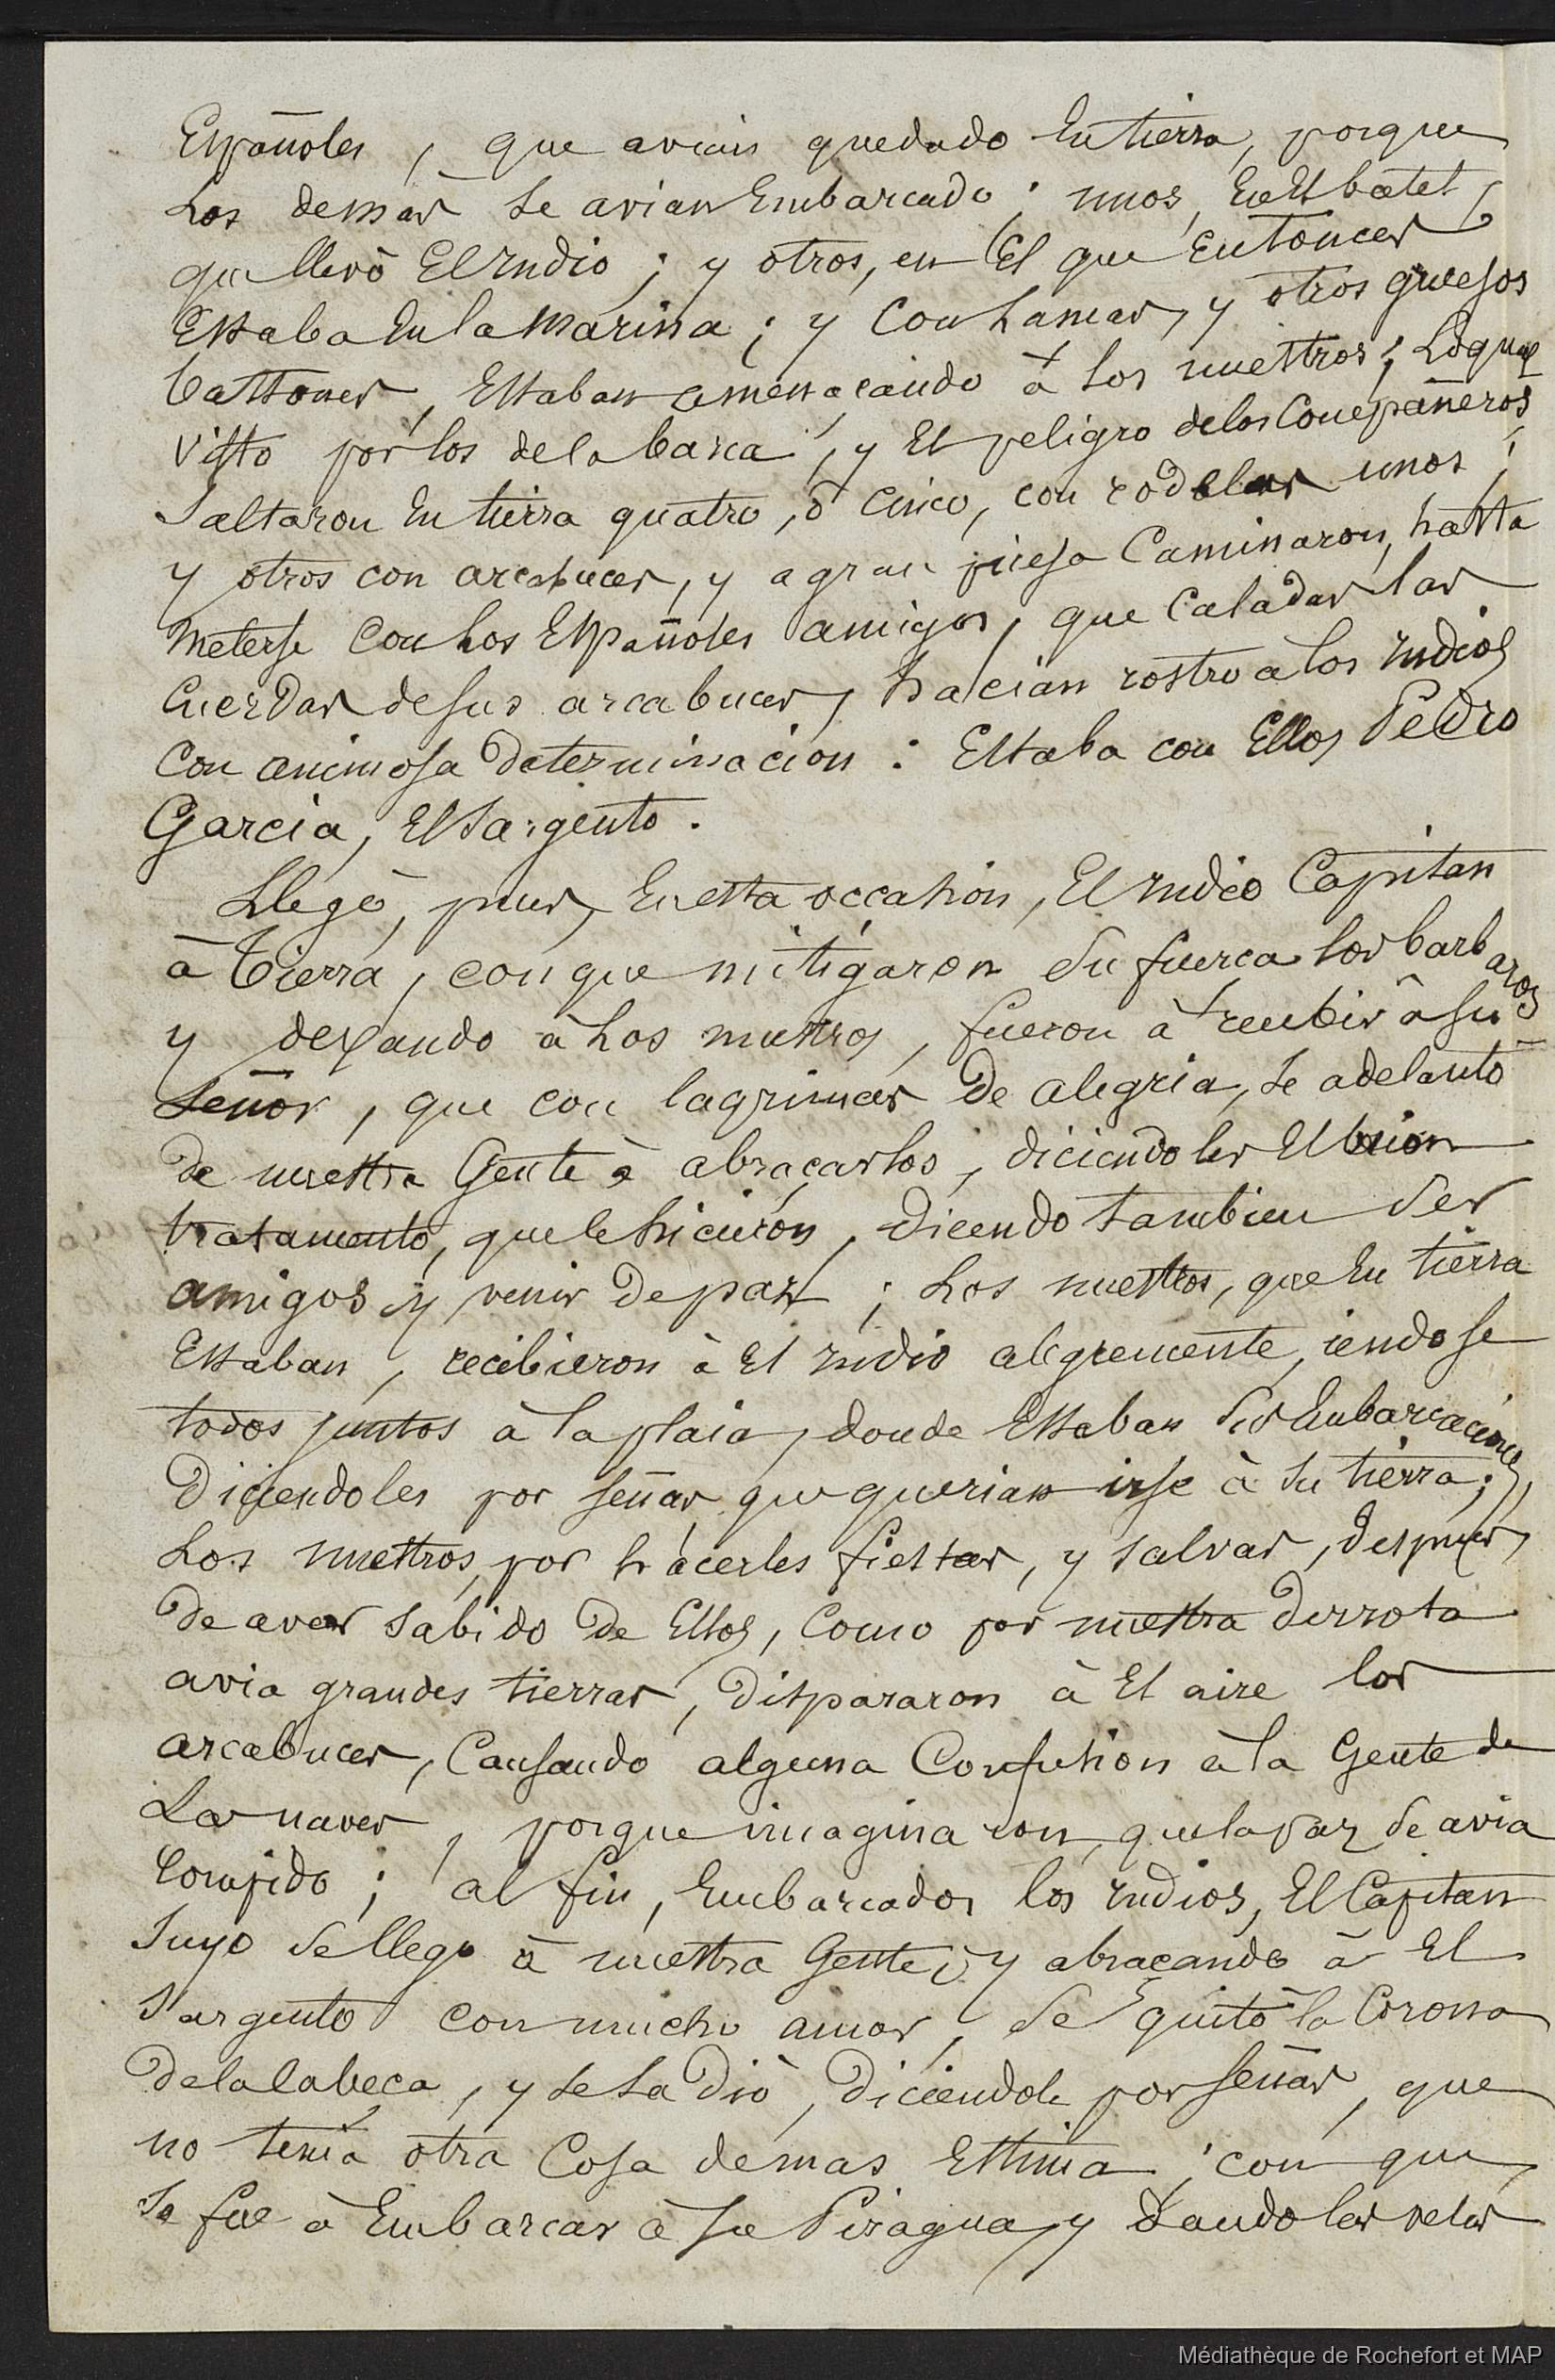 Españoles, que avian quedado En tierra, porque
Los demas se avian Embarcado; unos, En El batel
que llevò El Indio; y otros, en El que Entonces
Estaba En la Marina; y Con Lanças, y otros gruesos
bastones, Estaban amenaçando à los nuestros; Lo qual
Visto por los de la barca, y El peligro de los Compañeros,
Saltaron En tierra quatro, ò cinco, con rodelas unos;
y otros con arcabuces, y a gran priesa Caminaron, hasta
Meterse Con Los Españoles amigos, que Caladas las
Cuerdas de sus arcabuces, hacian rostro a los Indios
Con animosa Determinacion: Estaba con Ellos Pedro
Garcia, El Sargento.
Llegò, pues, En esta occasion, El Indio Capitan
à Tierra, con que mitigaron Su fuerça los barbaros
y dexando à Los nuestros, fueron à recibir à su
Señor, que con lagrimas De alegria, se adelantò
De nuestra Gente à abraçarlos, diciendoles El buen
tratamento, que le hicieron, Dicendo tambien Ser
amigos y venir De paz; Los nuestros, que En tierra
Estaban, recibieron à El Indio alegremente, iendose
todos juntos à la plaia, donde Estaban Sus Embarcaciones,
Diciendoles por señas que querian irse à su tierra;
Los nuestros, por hacerles fiestas, y salvas, Despues
De aver sabido De Ellos, Como por nuestra Derrota
avia grandes tierras, Dispararon à El aire los
arcabuces, Causando alguna Confusion a la Gente de
Las naves, porque imaginaron, que la paz se avia
Rompido; al fin, Embarcados los Indios, El Capitan
Suyo se llego à nuestra Gente, y abraçando à El
Sargento con mucho amor, Se quitò la Corona
De la Cabeça, y se La Diò, Diciendole por señas, que
no tenia otra Cosa de mas Estima; con que
se fue à Embarcar à su Piragua, y Dando las velas
Médiathèque de Rochefort et MAP